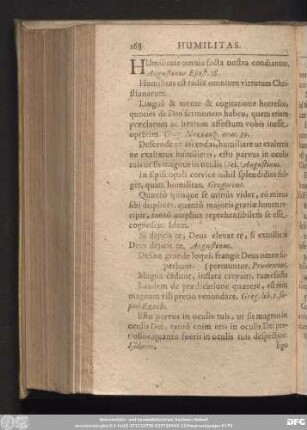 268 HUMILITAS.
HUmilitate omnia facta nostra condiantur,
Augustinus Epist. 58.
Humilitas est radix omnium virtutum Chri-
stianarum.
Linguâ & mente & cogitatione horresco,
quoties de Deo sermonem habeo, quem etiam
præclarum ac beatum affectum vobis inesse
optarim. Greg. Nazianz. orat. 39.
Descende ut ascendas, humiliare ut exalteris
ne exaltatus humilieris, esto parvus in oculis
tuis ut sis magnus in oculis Dei. Augustinus.
In Episcopali cervice nihil splendidius ful-
get, quàm humilitas. Gregorius.
Quantò quisque se minus videt, eò minus
sibi displicet, quantò majoris gratiæ lumen per-
cipit, tantò amplius reprehensibilem se esse
cognoscit. Idem.
Si dejicis te, Deus elevat te, si extollis te
Deus dejicit te. Augustinus.
Desine grande loqui, frangit Deus omne su-
perbum. Prudentius.
Magna cadunt, inflata crepant, tumefacta
laudem de prædicatione quærere, est rem
magnam vili pretio venundare. Greg. lib. 1. su-
per Ezech.
Esto parvus in oculis tuis, ut sis magnus in
oculis Dei, tantò enim eris in oculis Dei pre-
tiosior, quantò fueris in oculis tuis despectior.
Isidorus. Ego